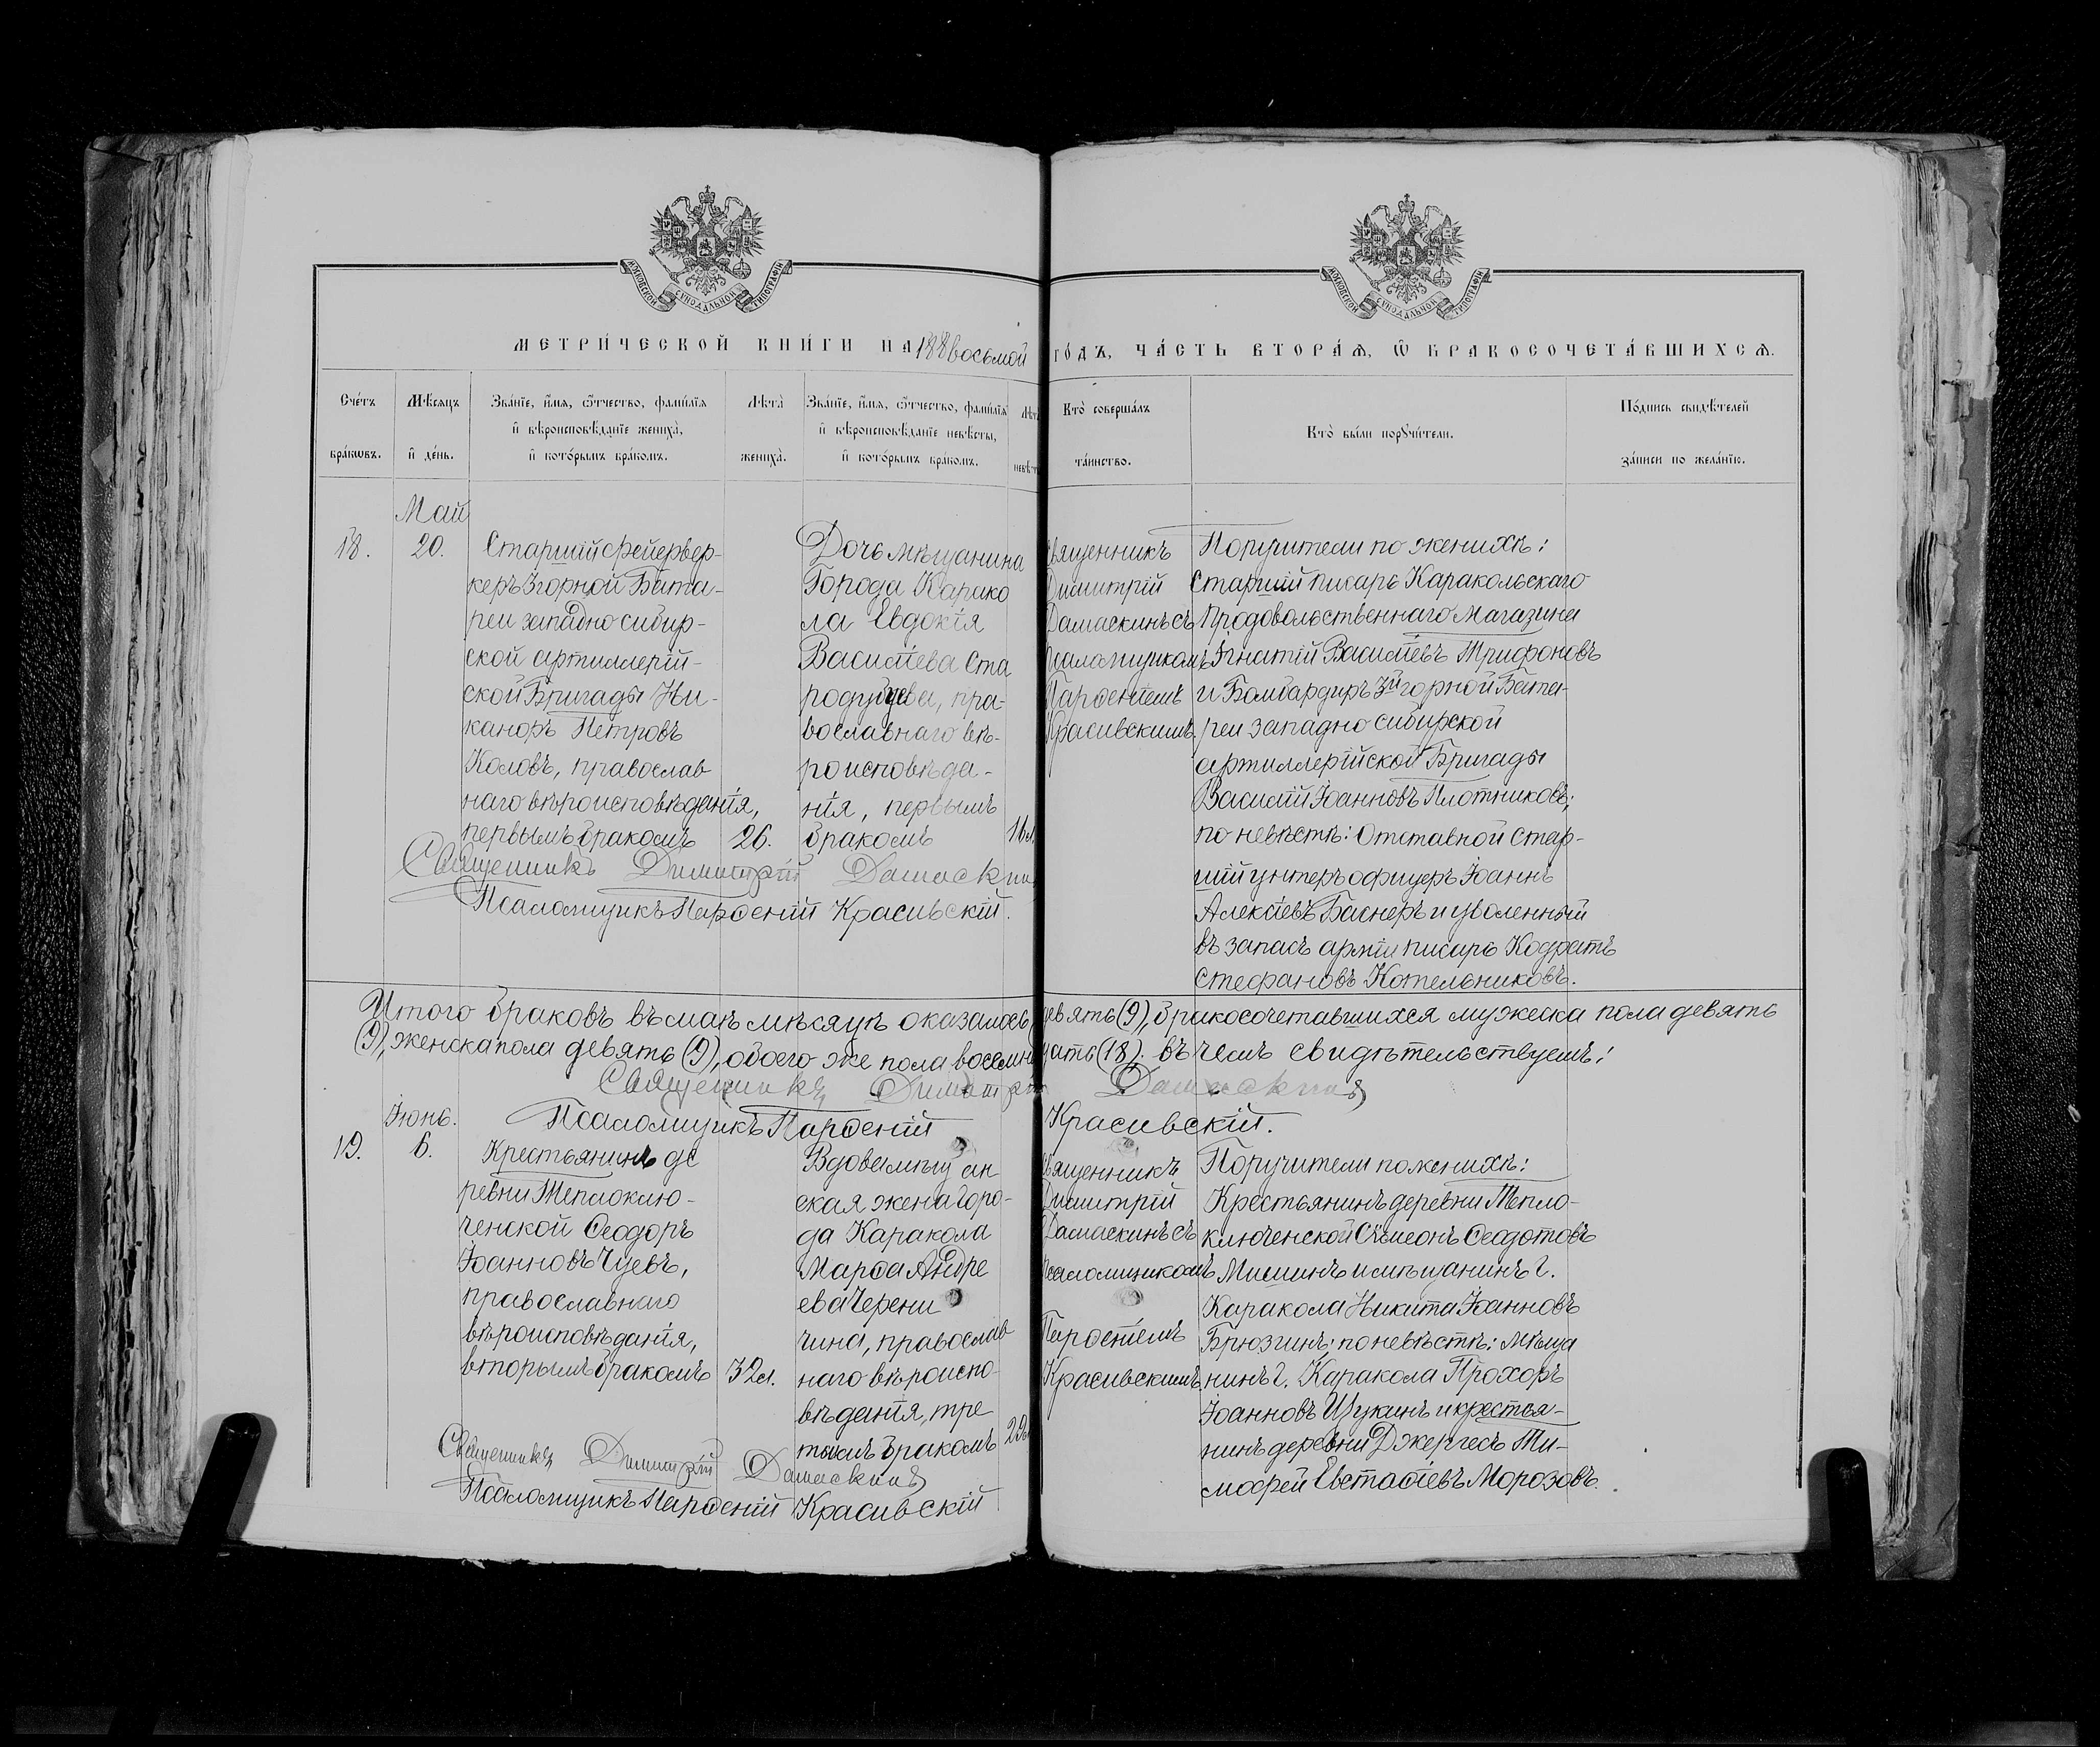 МОСКОВСКОЙ СѴНОДАЛЬНОЙ ТИПОГРАФІИ
МОСКОВСКОЙ СѴНОДАЛЬНОЙ ТИПОГРАФІИ
МЕТРИ́ЧЕСКОЙ КНИ́ГИ НА 188восьмой ГО́ДЪ, ЧА́СТЬ ВТОРА́Ѧ, Ѽ БРАКОСОЧЕТА́ВШИХСѦ.
Сче́тъ
бра́кѡвъ.
Мѣ́сѧцъ
и҆ де́нь.
Зва́нїе, и҆́мѧ, ѻ҆́тчество, фами́лїѧ
и҆ вѣроисповѣ́данїе жениха̀,
и҆ кото́рымъ бра́комъ.
Лѣ́та
жениха̀.
Зва́нїе, и҆́мѧ, ѻ҆́тчество, фами́лїѧ
и҆ вѣроисповѣ́данїе невѣ́сты,
и҆ кото́рымъ бра́комъ.
Лѣ́та
невѣ́ст
Кто̀ соверша́лъ
та́инство.
Кто̀ бы́ли порꙋчи́тели.
По́дпись свидѣ́телей
за́писи по жела́нїю.
Май
18.
20.
Старшій фейервер-
керъ 3 горной Бата-
реи западно сибир-
ской артиллерій-
ской Бригады Ни-
каноръ Петровъ
Коловъ, православ
наго вѣроисповѣданія,
первымъ бракомъ
26.
Дочь мѣщанина
Города Карако
ла Евдокія
Василіева Ста
родубцева, пра-
вославнаго вѣ-
роисповѣда-
нія, первымъ
бракомъ
16 л.
Священникъ
Димитрій
Дамаскинъ съ
Псаломщикомъ
Парѳеніемъ
Красивскимъ.
Поручители по женихѣ:
Старшій писарь Каракольскаго
Продовольственнаго Магазина
Игнатій Василіевъ Трифоновъ
и Бомбардиръ 3й горной Бата-
реи западно сибирской
артиллерійской Бригады
Василій Іоанновъ Плотниковъ;
по невѣстѣ: Отставной Стар-
шій унтеръ офицеръ Іоаннъ
Алексіевъ Баснеръ и уволенный
въ запасъ арміи писарь Кодратъ
Стефановъ Котельниковъ.
Священникъ Димитрій Дамаскинъ
Псаломщикъ Парѳеній Красивскій.
Итого браковъ въ маѣ мѣсяцѣ оказалось девять (9), бракосочетавшихся мужеска пола девять
(9), женска пола девять (9), обоего же пола восемнадцать (18). въ чемъ свидѣтельствуемъ:
Священникъ Димитрій Дамаскинъ
Псаломщикъ Парѳеній Красивскій.
Іюнь.
19.
6.
Крестьянинъ де
ревни Теплоклю-
ченской Ѳеодоръ
Іоанновъ Чуевъ,
православнаго
вѣроисповѣданія,
вторымъ бракомъ
32 л.
Вдова мѣщан
ская жена Горо-
да Каракола
Марѳа Андре
ева Черени
чина, православ
наго вѣроиспо-
вѣданія, тре
тьимъ бракомъ
29 л.
Священникъ
Димитрій
Дамаскинъ съ
Псаломщикомъ
Парѳеніемъ
Красивскимъ.
Поручители по женихѣ:
Крестьянинъ деревни Тепло-
ключенской Сѵмеонъ Ѳеодотовъ
Мишинъ и мѣщанинъ г.
Каракола Никита Іоанновъ
Брюзгинъ; по невѣстѣ: Мѣща
нинъ г. Каракола Прохоръ
Іоанновъ Щукинъ и крестья-
нинъ деревни Джергесъ Ти-
моѳей Евстаѳіевъ Морозовъ.
Священникъ Димитрій Дамаскинъ
Псаломщикъ Парѳеній Красивскій